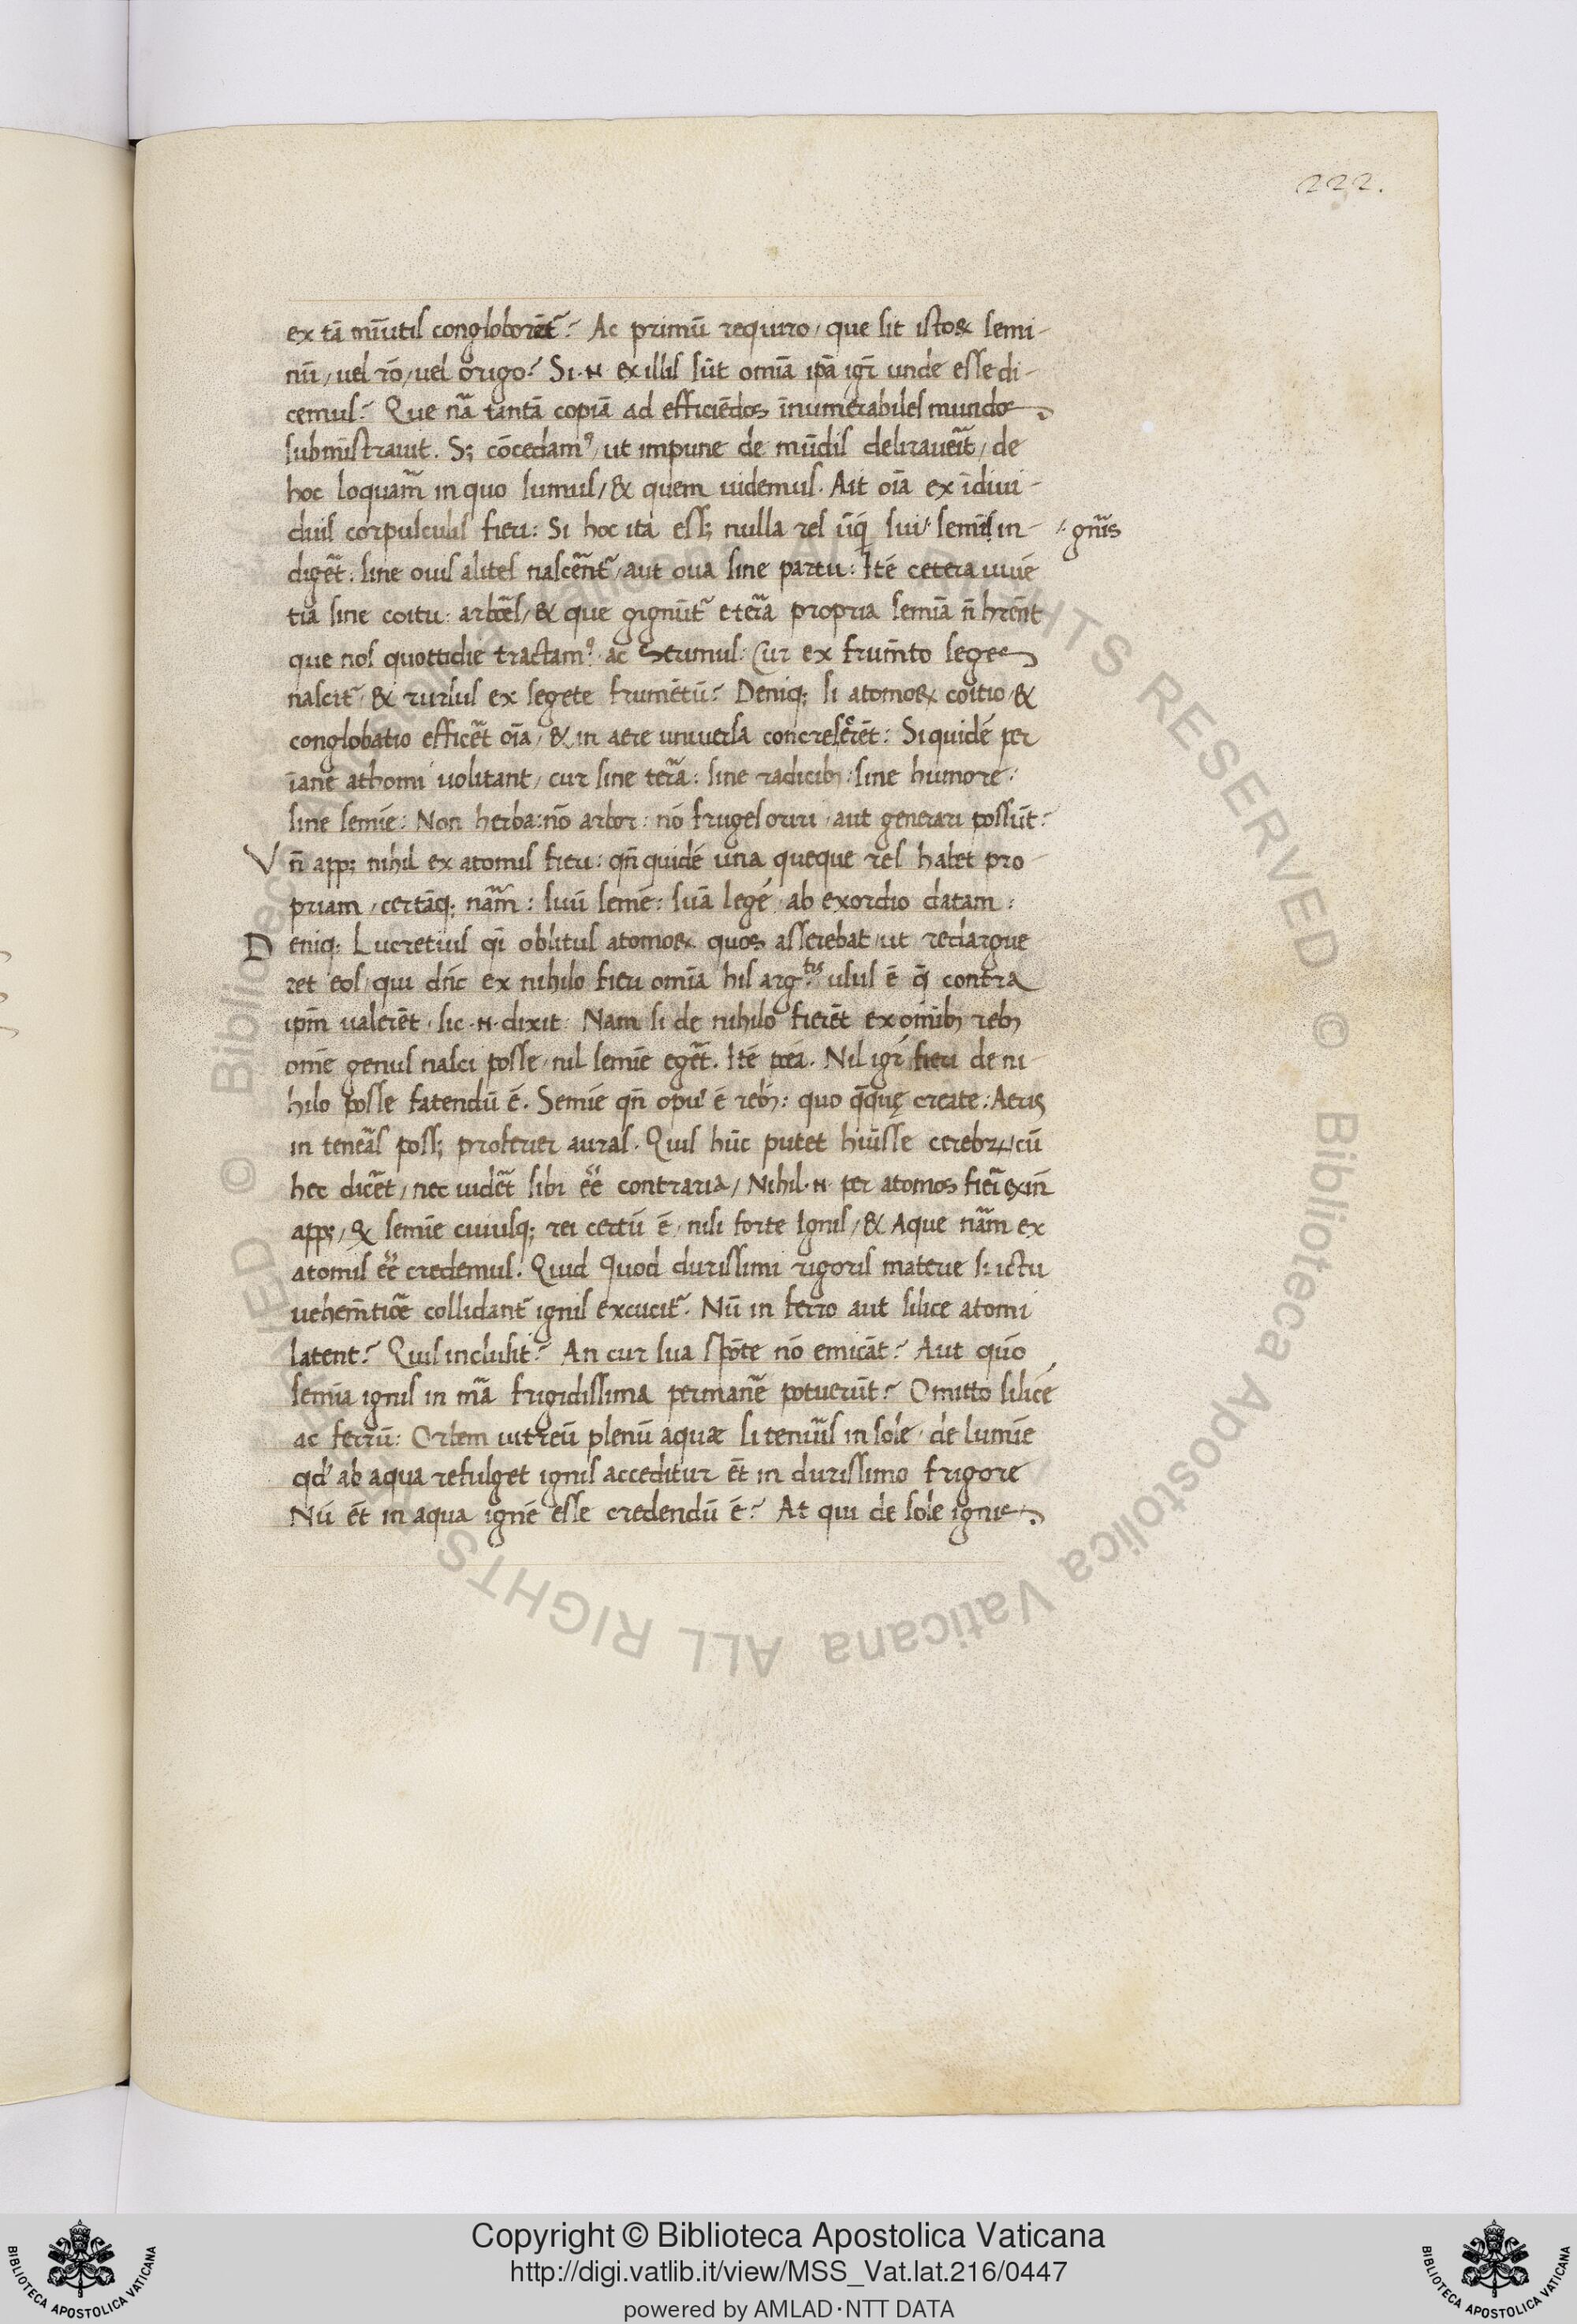 222.
ex tā mīutis congloborēt᷑? Ac primū requiro, que sit istoꝝ semi-
nū, uel rō, uel origo? Si .N. ex illis sūt omīa ipā igr̄ unde esse di-
cemus? Que nā tantā copiā ad efficiēdos īnumerabiles mundos
subministrauit. Sꝫ cōcedamꝰ, ut impune de mūdis delirauerīt, de
hoc loquam̄ in quo sumus, & quem uidemus. Ait oīa ex īdiui-
duis corpusculis fieri: Si hoc ita essꝫ nulla res ūq̄ sui semīs in-
gn̄is
digēt: sine ouis alites nascēnt᷑, aut oua sine partu: Itē cetera uiuē
tia sine coitu: arbōes, & que gignūt᷑ e terā propria semīa n̄ hrēnt
que nos quottidie tractamꝰ ac serimus: Cur ex frum̄to seges
nascit᷑, & rursus ex segete frumētū? Deniqꝫ si atomoꝝ coitio, &
conglobatio efficēt oīa, & in aere uniuersa concrescerēt: Siquidē per
īane athomi uolitant, cur sine terā: sine radicibꝫ: sine humore:
sine semīe: Non herba: nō arbor: nō fruges oriri, aut generari possūt?
Vn̄ appꝫ nihil ex atomis fieri: qn̄ quidē una queque res habet pro-
priam, certāqꝫ nām: suū semē: suā legē, ab exordio datam:
Deniqꝫ Lucretius q̄i oblitus atomoꝝ quos asserebat, ut redargue
ret eos, qui dn̄t ex nihilo fieri omīa his arg.tis usus ē q̄ contra
ipm̄ ualerēt, sic .N. dixit: Nam si de nihilo fierēt ex omibꝫ rebꝫ
omē genus nasci posse, nil semīe egēt. Itē poēa. Nil igr̄ fieri de ni-
hilo posse fatendū ē. Semīe qn̄ opuꝰ ē rebꝫ: quo q̄que create: Aeris
in teneās possꝫ proferier auras. Quis hūc putet hūisse cerebꝝ, cū
hec dicēt, nec uidēt sibi eē contraria, Nihil .N. per atomos fieri exin̄
appꝫ, ꝙ semīe cuiusqꝫ rei certū ē, nisi forte Ignis, & Aque nām ex
atomis eē credemus. Quid Quod durissimi rigoris materie si ictu
uehem̄tioē collidant᷑ ignis excucit᷑. Nū in ferro aut silice atomi
latent? Quis inclusit? An cur sua spōte nō emicāt? Aut quō
semīa ignis in mā frigidissima permanē potuerūt? Omitto silicē
ac ferrū: Orbem uitreū plenū aquæ si tenuīs in sole, de lumīe
qd' ab aqua refulget ignis acceditur ēt in durissimo frigore
Nū ēt in aqua ignē esse credendū ē? At qui de sole ignis
Copyright © Biblioteca Apostolica Vaticana
http://digi.vatlib.it/view/MSS_Vat.lat.216/0447
powered by AMLAD·NTT DATA